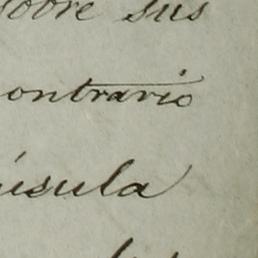 sobre sus
contrario
úsula